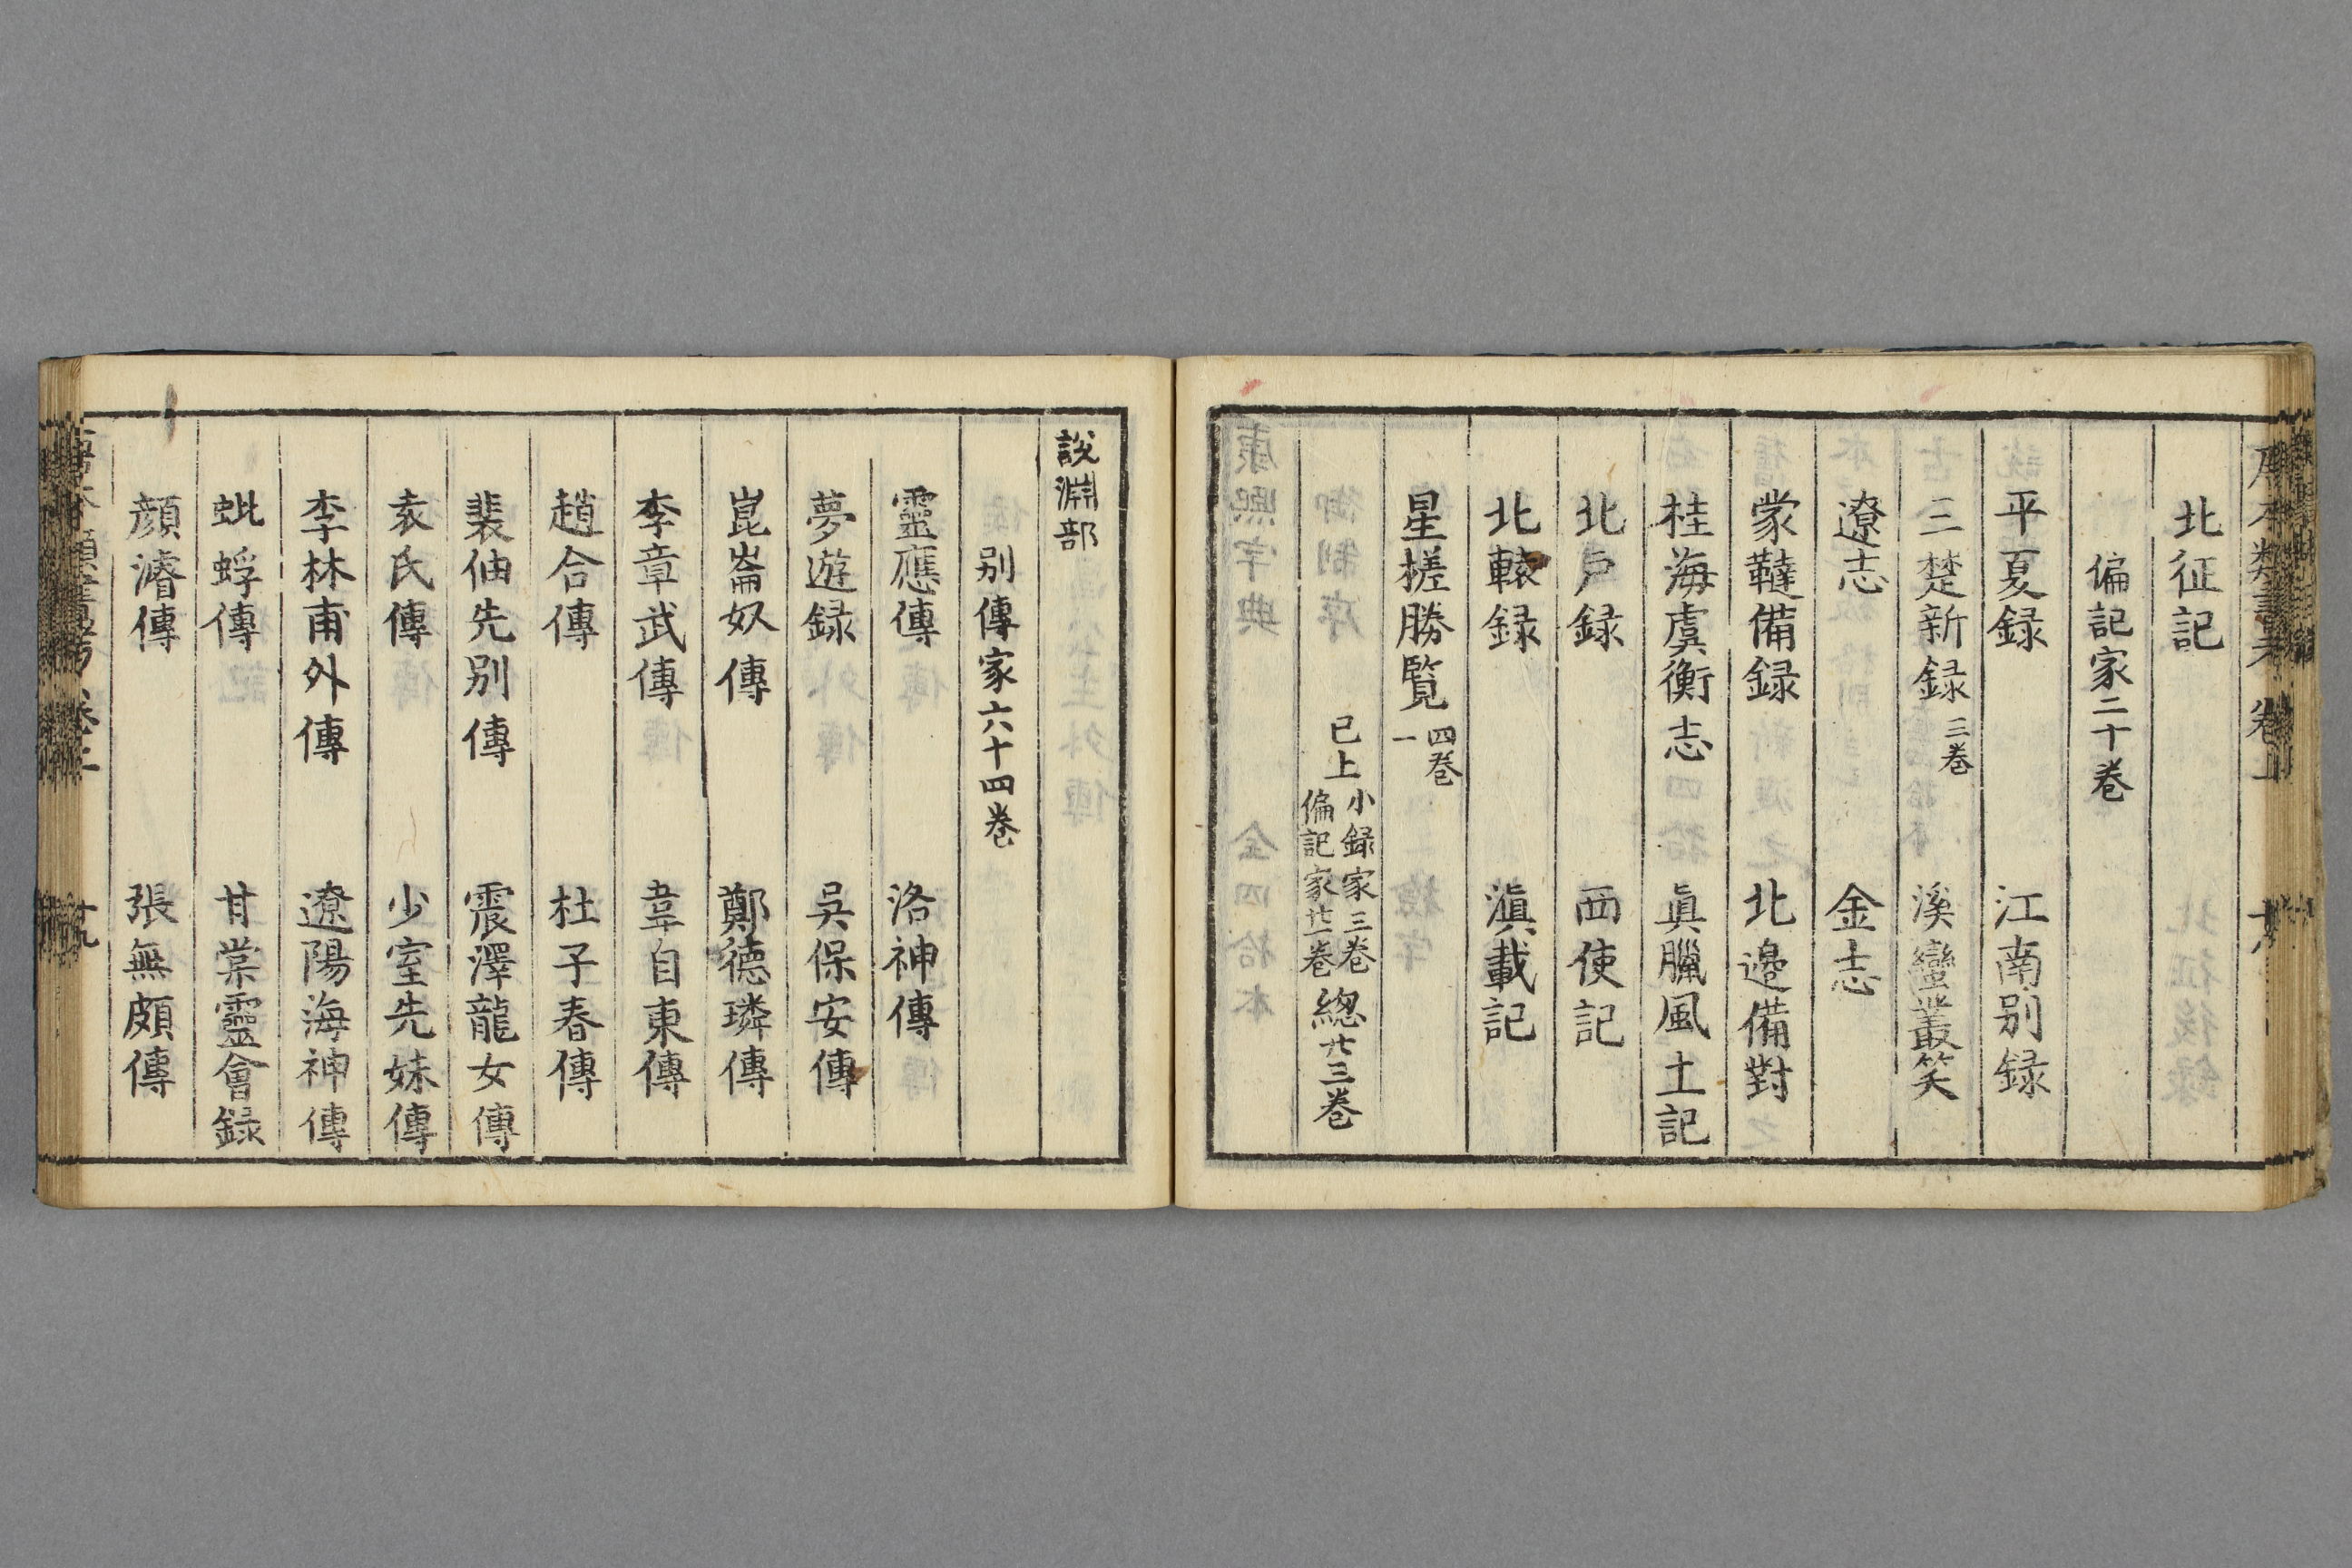 北征記
偏記家二十卷
平夏録　江南别録
三楚新録三卷　溪蠻叢笑
遼志　金志
蒙韃備録　北邊備對
桂海虞衡志　眞臘風土記
北戸録　西使記
北轅録　滇載記
星槎勝覧四卷一
已上小録家三卷偏記家廿一卷總廿三卷
說淵部
别傳家六十四卷
靈應傳　洛神傳
夢遊録　吳保安傳
崑崙奴傳　鄭德璘傳
李章武傳　韋自東傳
趙合傳　杜子春傳
裴伷先别傳　震澤龍女傳
袁氏傳　少室先姝傳
李林甫外傳　遼陽海神傳
蚍蜉傳　甘棠靈會録
顔濬傳　張無頗傳